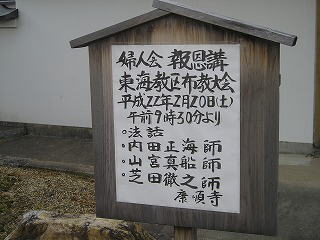 婦人会 報恩講
東海教区布教大会
平成22年2月20日(土)
午前9時30分より
○法話
○内田正海師
○山宮真船師
○芝田徹之師
康順寺